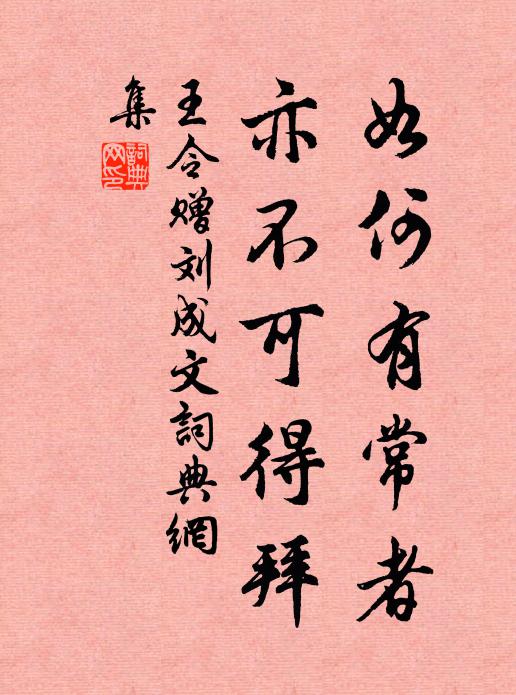 如何有常者
亦不可得拜
王令赠刘成文詞典網
集
詞典網印